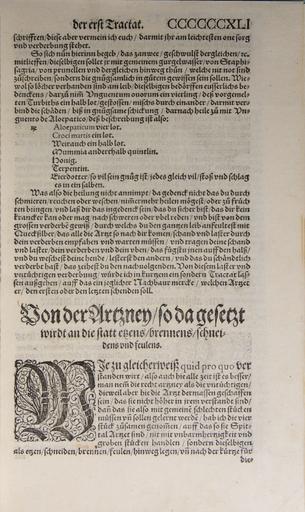 der erst Tractat. CCCCCCXLI
schrifften / dise aber vermein ich euch / darmit jhr am leichtesten one sorg
vnd verderbung stehet.
So sich nůn hierinn begeb / das zanwee / geschwulst dergleichen / re-
mitlieffen / dieselbigen sollet jr mit gemeinem gurgelwasser / von Staphi-
sagria / von prunellen vnd dergleichen hinweg thůn / welche nit not sind
zůschreiben / sonder die gnůgsamlich in gůtem gewissem sein sollen. Wie-
wol so löcher verhanden sind am leib / dieselbigen bedörffen eusserlichs be-
denckens / darzů nim Vnguentum ouorum ein vierling / deß vorgemel-
ten Turbiths ein halb lot / gestossen / mischs durch einander / darmit ver-
bind die schäden / biß in gnůgsame schickung / darnach heile zů mit Vn-
guento de Aloepatico, deß beschreibung ist also:
Aloepaticum vier lot.
Croci martis ein lot.
Weirauch ein halb lot.
Mummia anderthalb quintlin.
Honig.
Terpentin.
Eierdotter / so vil sein gnůg ist / jedes gleich vil / stoß vnd schlag
es in ein salben.
Was also die heilung nicht annimpt / da gedenck nicht das du durch
schmieren / reuchen oder weschen / nimermehr heilen mögest / oder zů früch-
ten bringen / vnd laß dir das ingedenck sein / das du sicher bist / das dir kein
krancker stan oder mag / nach schweren oder vbel reden / vnd bist von dem
grossen verderbe gewiß / durch welchs du den gantzen leib anfeultest mit
Quecksilber / das alle die Artzt so nach dir komen / schand vnd laster durch
dein verderben empfahen vnd warten müssen / vnd tragen deine schand
vnd laster / dein verderben vnd dein vbel / das fügstu jnen auff den halß /
vnd du weschest deine hend / lesterst den andern / vnd das du schändtlich
verderbt hast / das zeihest du den nachuolgenden. Von disem laster vnd
vnzüchtigen verderbung / würd ich in kurtzem ein sondern Tractat las-
sen außgehen / auff das ein jeglicher Nachbaur mercke / welchen Artzet
er / den ersten oder den letzten schenden soll.
Von der Artzney / so da gesetzt
wirdt an die statt etzens / brennens / schnei-
dens vnd feulens.
WJe zu gleicherweiß quid pro quo ver-
standen wirt / also auch hie alle zeit ist es besser /
man neñ die recht artzney als die vntüchtigen /
dieweil aber die die Artzt dermassen geschaffen
sein / das sie nicht höher in jrem verstande sind /
dañ das sie also mit gemeine schlechten stücken
müssen den sollen gelernt werdẽ / hab ich die vier
stück zůsamen genomen / auff das so sie Spi-
tal Artzet sind / nit mit vnbarmhertzigkeit vnd
groben stücken handlen / sondern dieselbigen
als etzen / schneiden / brennen / feulen / hinweg legen / vñ nach der kürtze für
dise